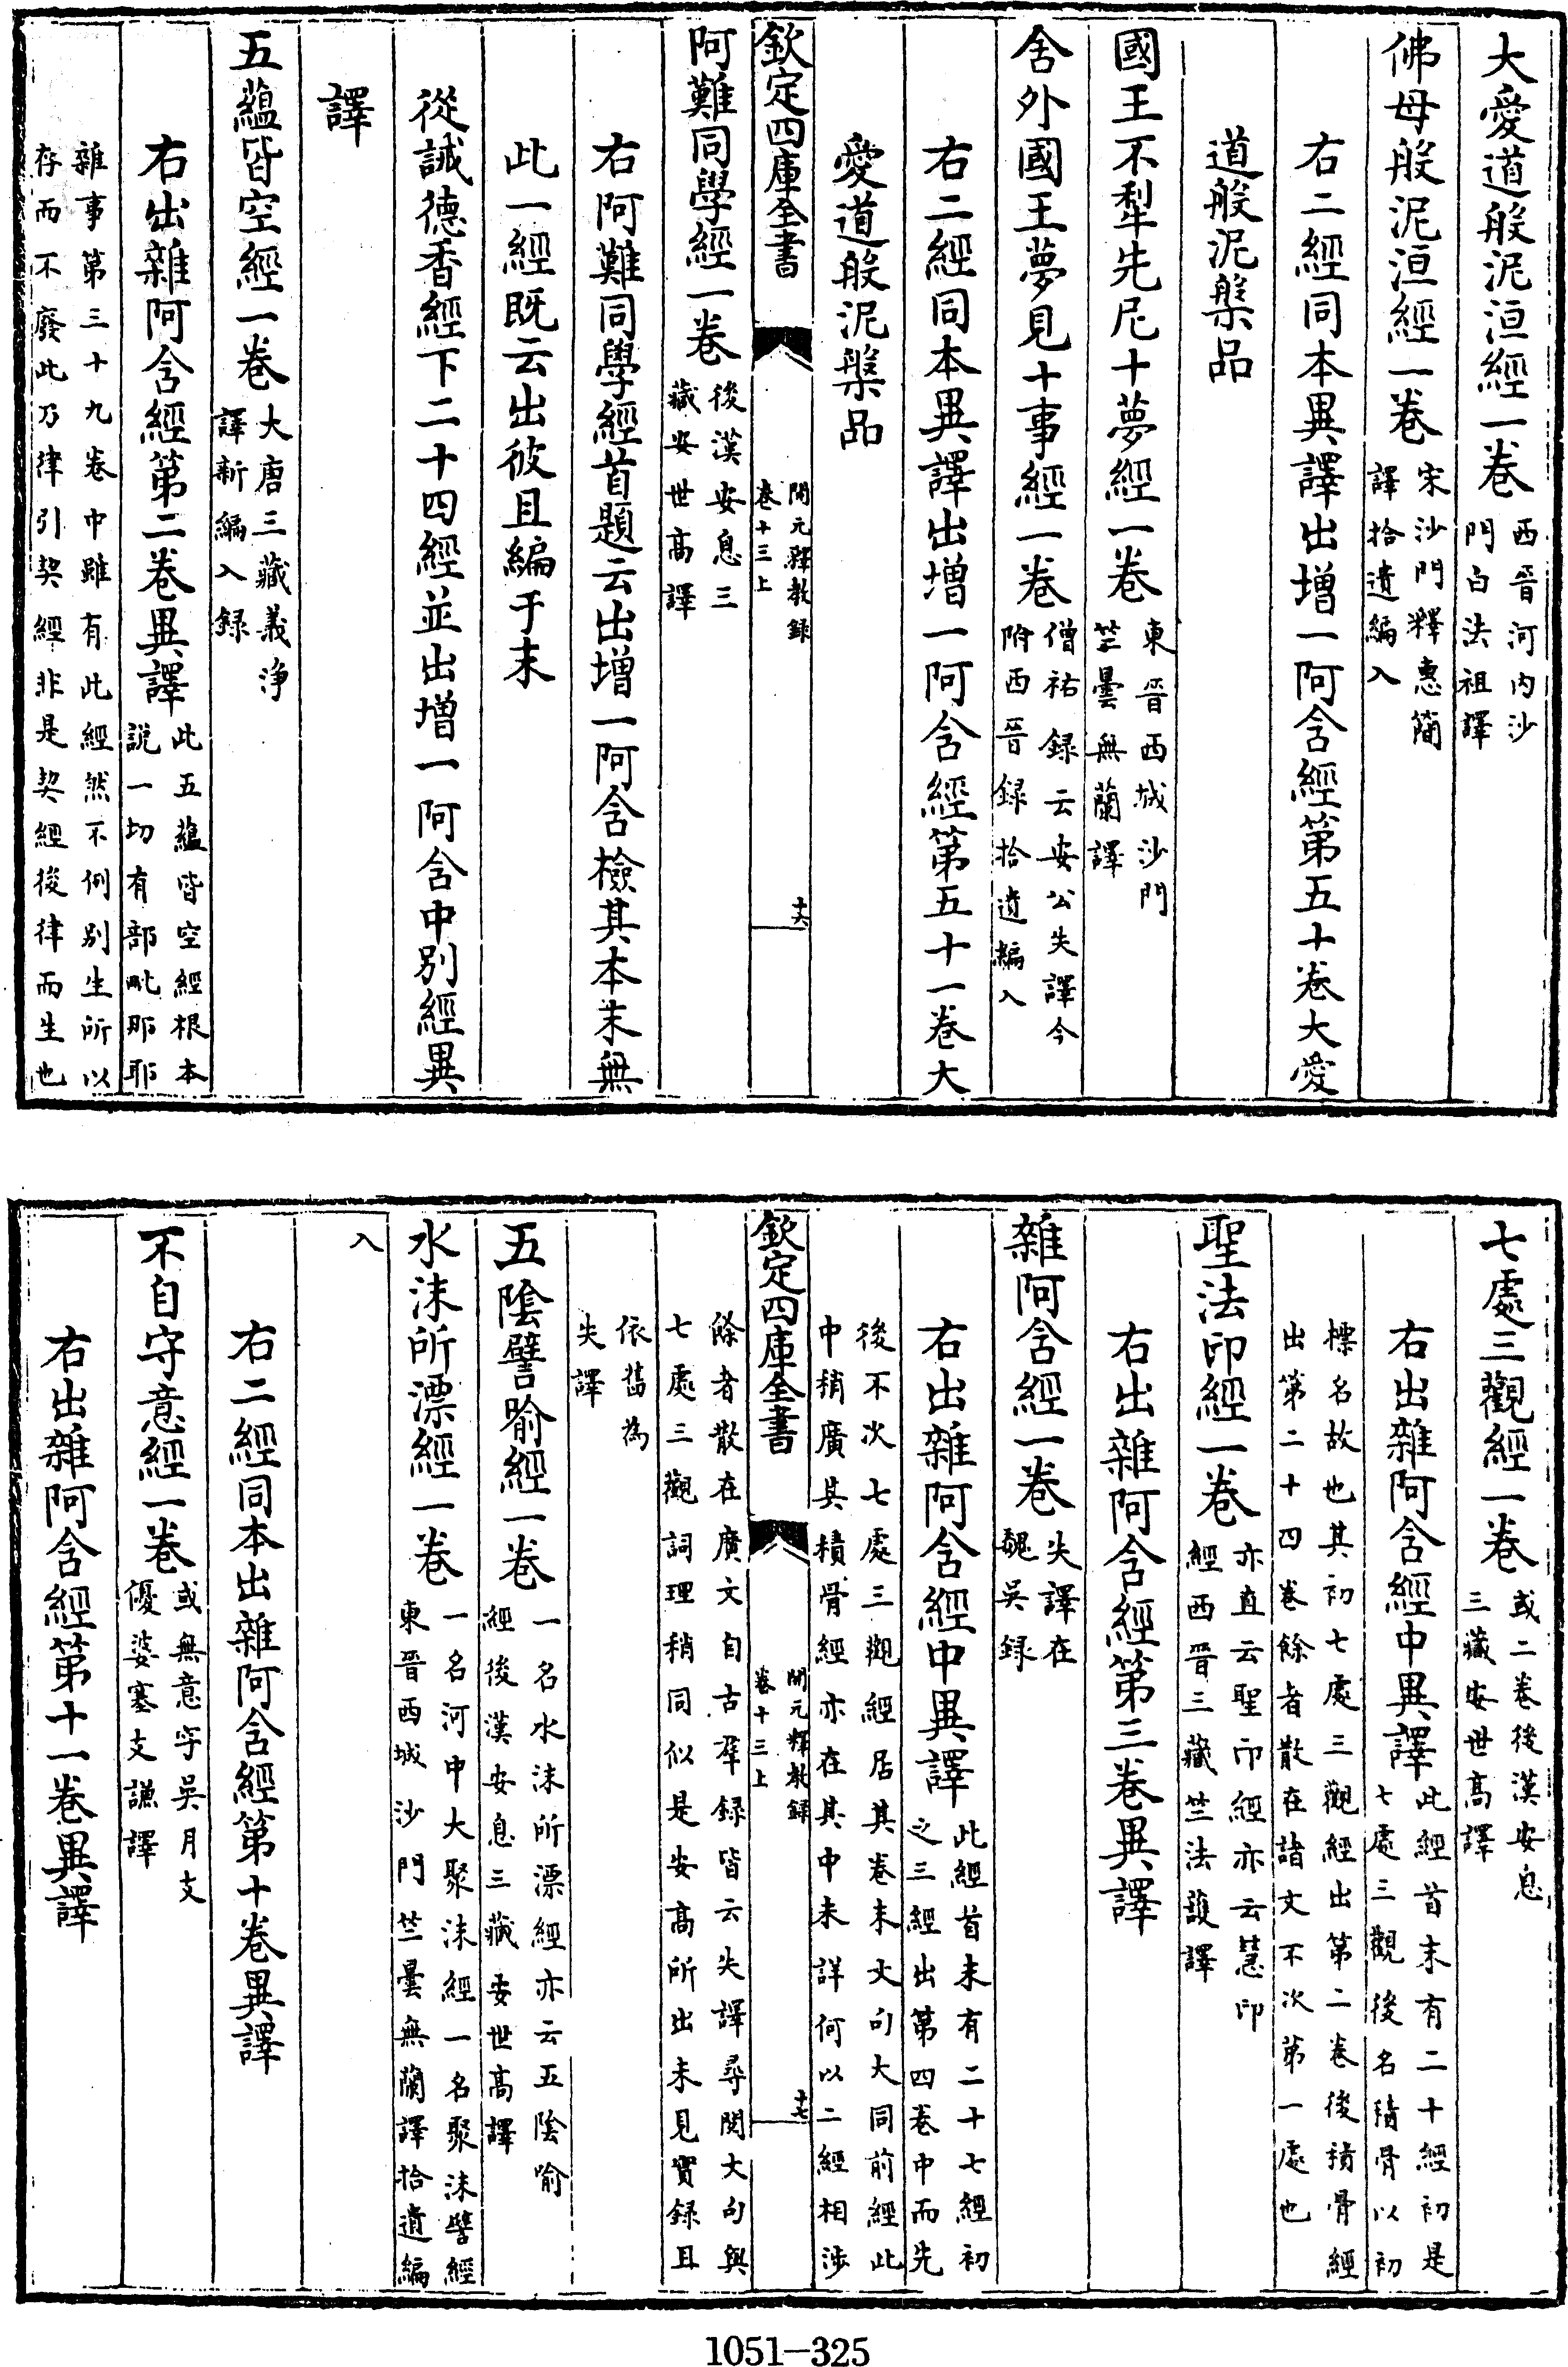 大愛道般泥洹經一卷西晉河内沙門白法祖譯
佛母般泥洹經一卷宋沙門釋惠簡譯拾遺編入
右二經同本異譯出增一阿含經第五十卷大愛
道般泥槃品
國王不犁先尼十夢經一卷東晉西域沙門竺曇無蘭譯
舍外國王夢見十事經一卷僧祐録云安公失譯今附西晉録拾遺編入
右二經同本異譯出增一阿含經第五十一卷大
愛道般泥槃品
欽定四庫全書 開元釋教録卷十三上 十六
阿難同學經一卷後漢安息三藏安世高譯
右阿難同學經首題云出增一阿含檢其本末無
此一經既云出彼且編于末
從誡德香經下二十四經並出增一阿含中別經異
譯
五蘊皆空經一卷大唐三藏義淨譯新編入録
右出雜阿含經第二卷異譯此五蘊皆空經根本説一切有部毗那耶
雜事第三十九卷中雖有此經然不例別生所以存而不廢此乃律引契經非是契經後律而生也
七處三觀經一卷或二卷後漢安息三藏安世高譯
右出雜阿含經中異譯此經首末有二十經初是七處三觀後名積骨以初
標名故也其初七處三觀經出第二卷後積骨經出第二十四卷餘者散在諸文不次第一處也
聖法印經一卷亦直云聖印經亦云慧印經西晉三藏竺法護譯
右出雜阿含經第三卷異譯
雜阿含經一卷失譯在魏吳録
右出雜阿含經中異譯此經首末有二十七經初之三經出第四卷中而先
後不次七處三觀經居其卷末文句大同前經此中稍廣其積骨經亦在其中未詳何以二經相涉
欽定四庫全書 開元釋教録卷十三上 十七
餘者散在廣文自古羣録皆云失譯尋閱文句與七處三觀詞理稍同似是安高所出未見實録且
依舊為失譯
五陰譬喻經一卷一名水沫所漂經亦云五陰喻經後漢安息三藏安世高譯
水沫所漂經一卷一名河中大聚沫經一名聚沫譬經東晉西域沙門竺曇無蘭譯拾遺編
入
右二經同本出雜阿含經第十卷異譯
不自守意經一卷或無意字吳月支優婆塞支謙譯
右出雜阿含經第十一卷異譯
1051—325